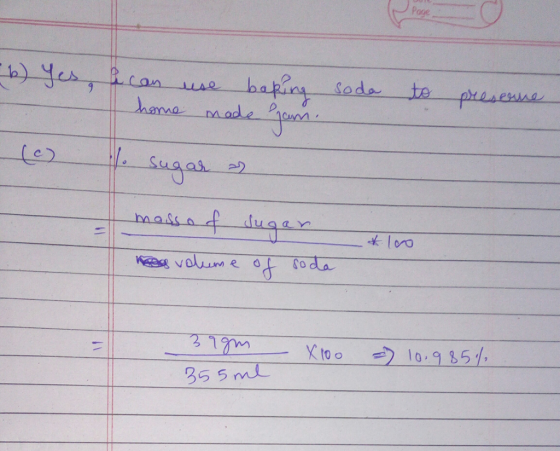 Page
(b) Yes, I can use baking soda to preserve
home made jam.
(c) % sugar ⇒
= mass of sugar
* 100
volume of soda
= 39gm
×100 ⇒ 10.985%
355ml